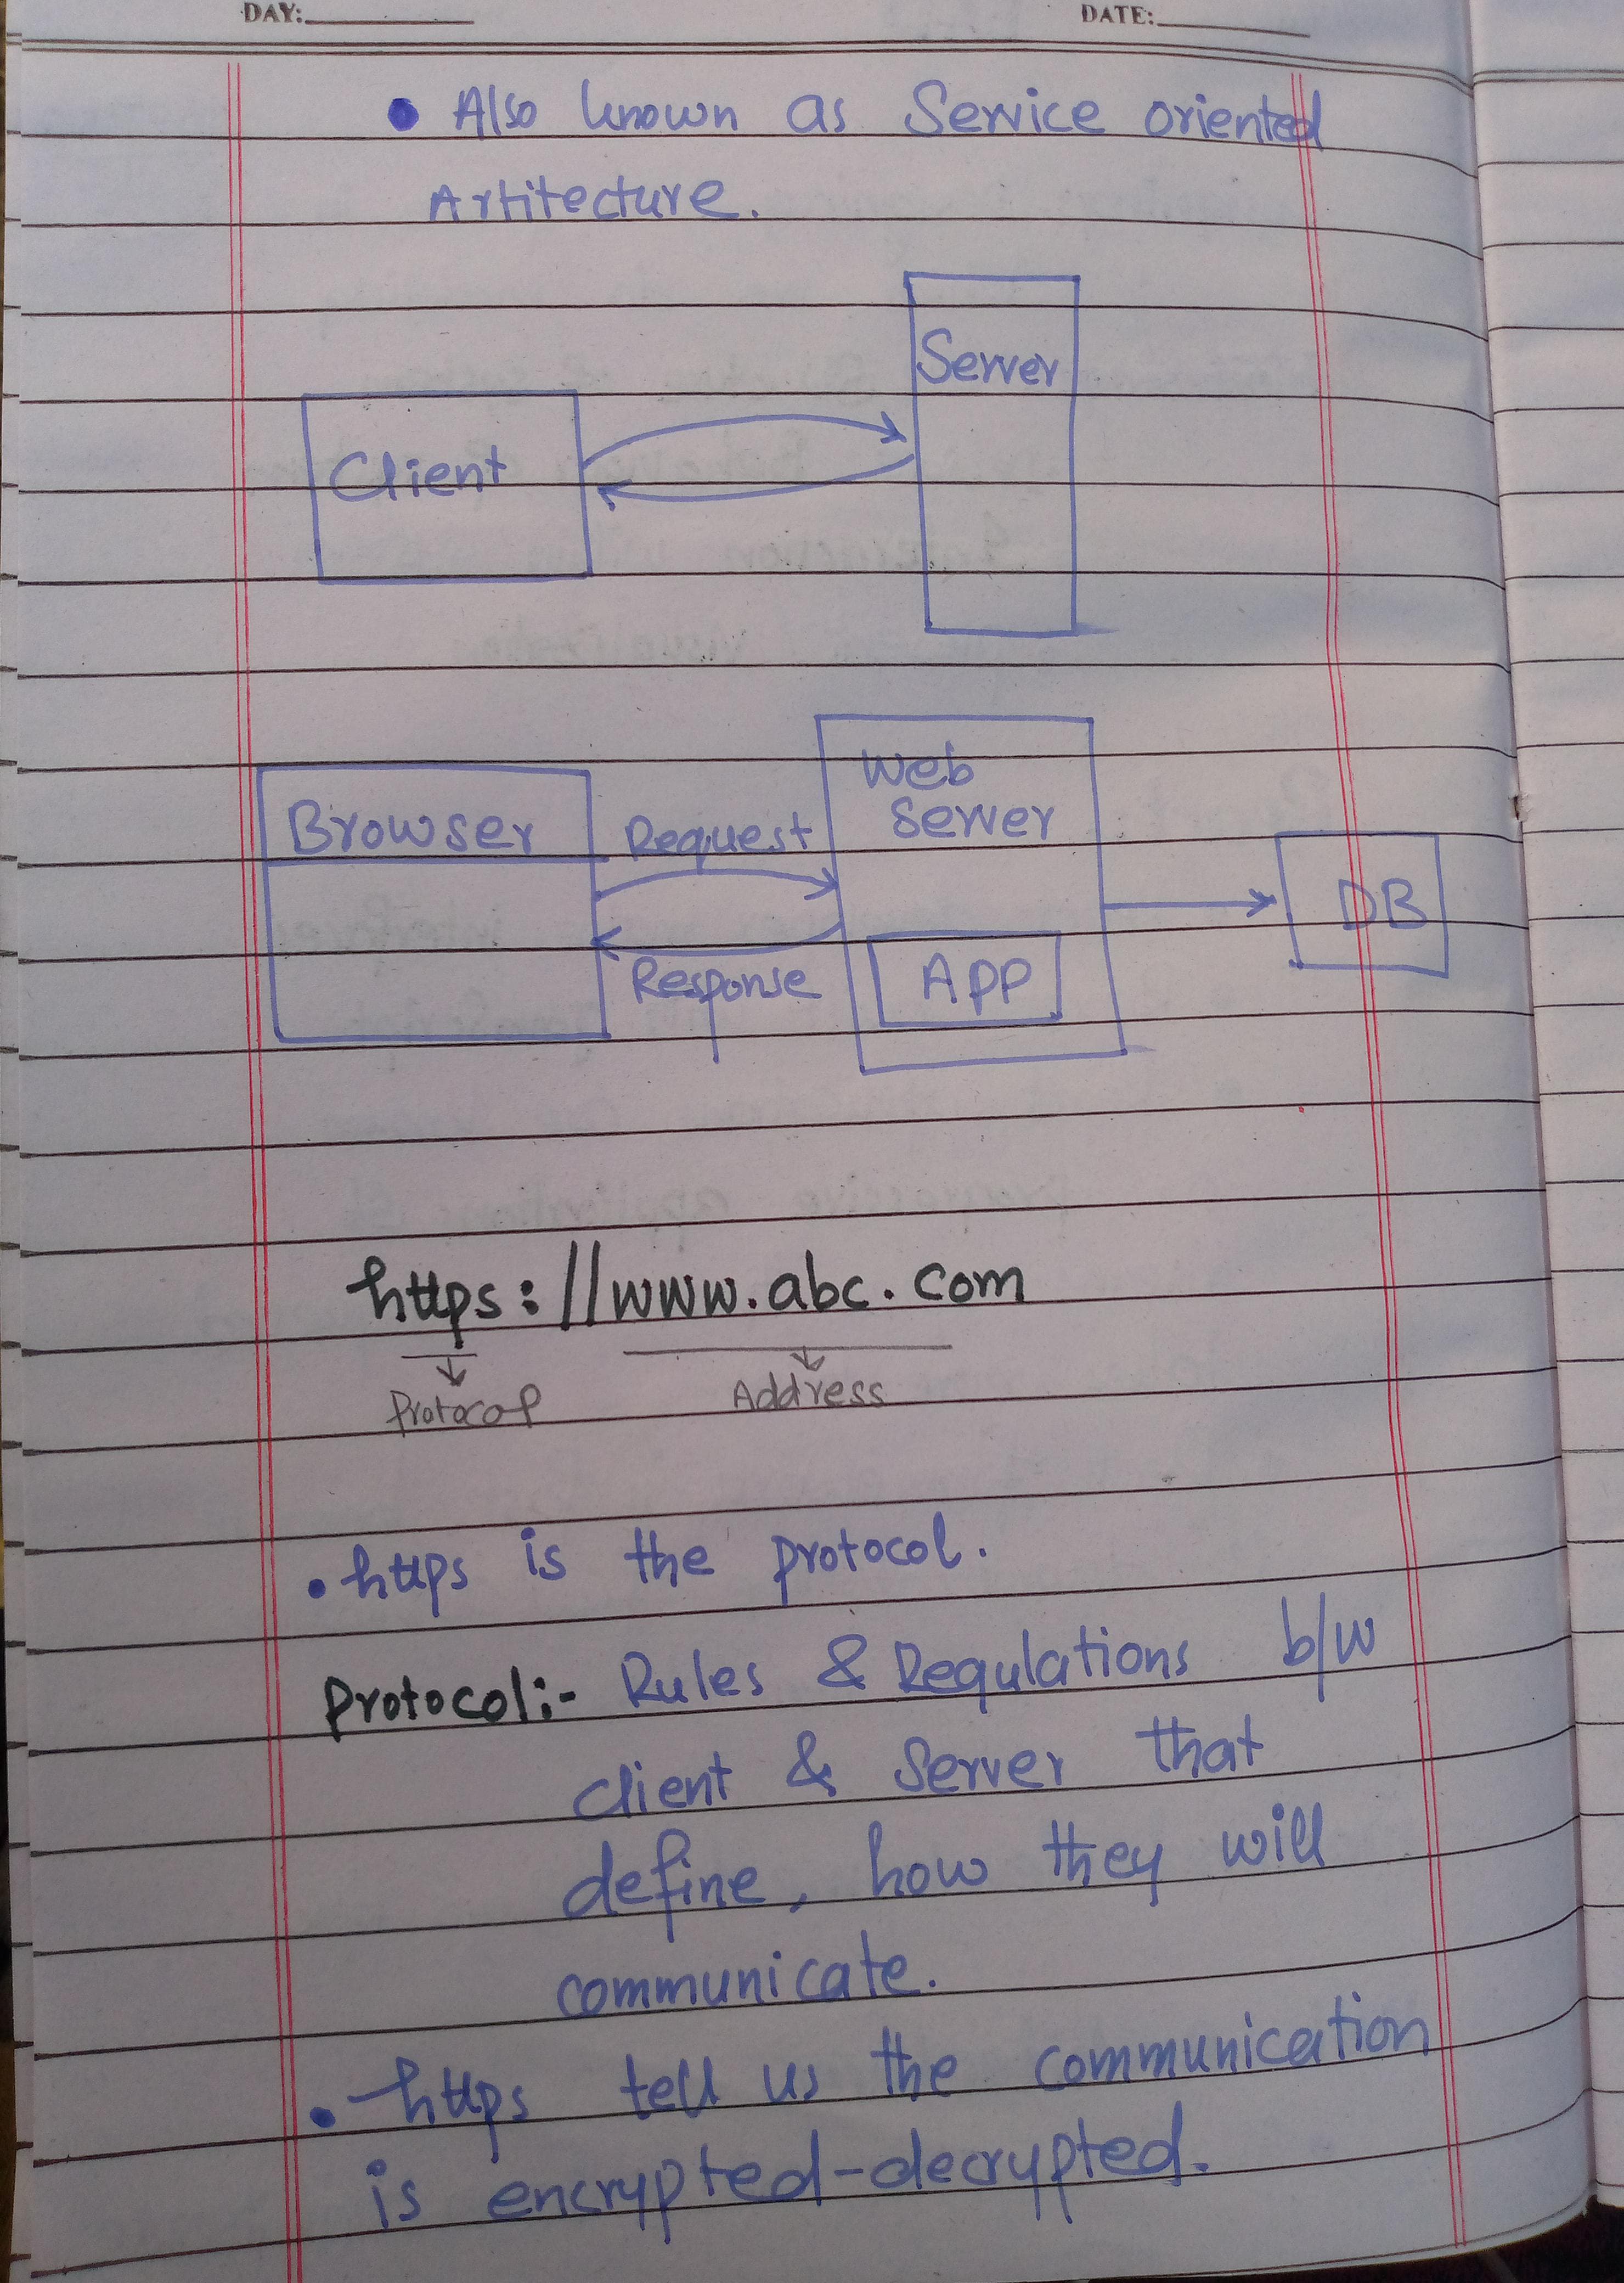 DAY:
DATE:
• Also known as Service oriented
Artitecture.
Server
Client
Web
Server
Browser
Request
DB
Response
App
https://www.abc.com
Protocol
Address
• https is the protocol.
Protocol:- Rules & Regulations b/w
client & Server that
define, how they will
communicate.
• https tell us the communication
is encrypted-decrypted.